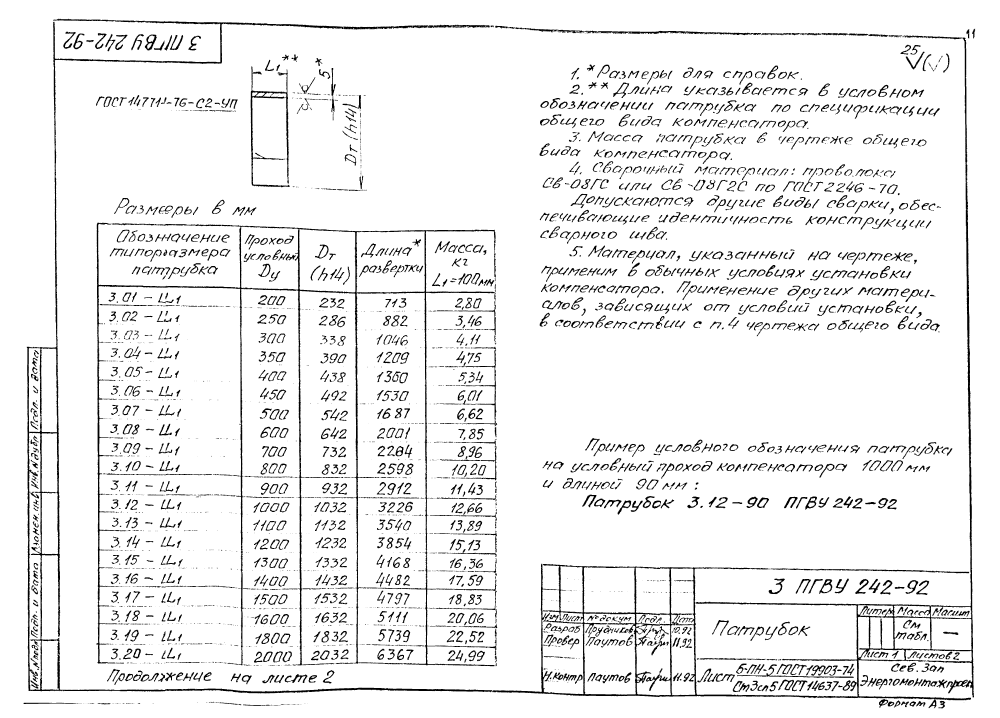 11
3 ПГВУ 242-92
25 √(√)
L1**
5
ГОСТ 14771-76-С2-УП
Dт (h14)
1. *Размеры для справок.
2. ** Длина указывается в условном
обозначении патрубка по спецификации
общего вида компенсатора.
3. Масса патрубка в чертеже общего
вида компенсатора.
4. Сварочный материал: проволока
Св-08ГС или Св-08Г2С по ГОСТ 2246-70.
Допускаются другие виды сварки, обес-
печивающие идентичность конструкции
сварного шва.
5. Материал, указанный на чертеже,
применим в обычных условиях установки
компенсатора. Применение других матери-
алов, зависящих от условий установки,
в соответствии с п.4 чертежа общего вида.
Размеры в мм
Обозначение типоразмера патрубка | Проход условный Dу | Dт (h14) | Длина* развертки | Масса, кг L1=100мм
3.01 - L1 200 232 713 2,80
3.02 - L1 250 286 882 3,46
3.03 - L1 300 338 1046 4,11
3.04 - L1 350 390 1209 4,75
3.05 - L1 400 438 1360 5,34
3.06 - L1 450 492 1530 6,01
3.07 - L1 500 542 1687 6,62
3.08 - L1 600 642 2001 7,85
3.09 - L1 700 732 2284 8,96
3.10 - L1 800 832 2598 10,20
3.11 - L1 900 932 2912 11,43
3.12 - L1 1000 1032 3226 12,66
3.13 - L1 1100 1132 3540 13,89
3.14 - L1 1200 1232 3854 15,13
3.15 - L1 1300 1332 4168 16,36
3.16 - L1 1400 1432 4482 17,59
3.17 - L1 1500 1532 4797 18,83
3.18 - L1 1600 1632 5111 20,06
3.19 - L1 1800 1832 5739 22,52
3.20 - L1 2000 2032 6367 24,99
Продолжение на листе 2
Пример условного обозначения патрубка
на условный проход компенсатора 1000 мм
и длиной 90 мм:
Патрубок 3.12-90 ПГВУ 242-92
3 ПГВУ 242-92
Изм Лист № докум Подп. Дата
Разраб Прудников 10.92
Провер Паутов 11.92
Н.контр Паутов 11.92
Патрубок
Литер Масса Масшт
См табл. —
Лист 1 Листов 2
Лист Б-ПН-5 ГОСТ 19903-74
Ст3сп5 ГОСТ 14637-89
Сев. Зап
Энергомонтажпроект
Формат А3
Инв.№подл Подп. и дата Взамен инв. Инв.№дубл Подп. и дата